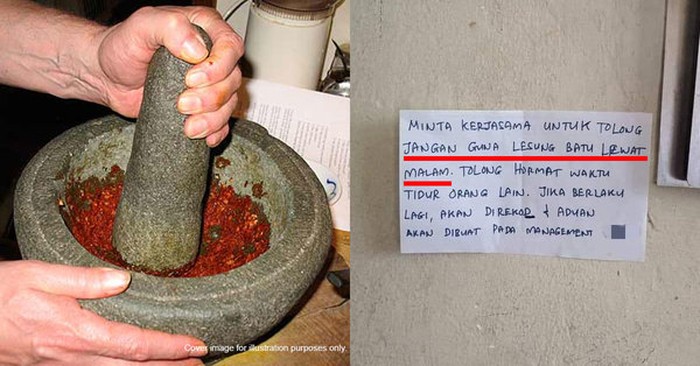 MINTA KERJASAMA UNTUK TOLONG
JANGAN GUNA LESUNG BATU LEWAT
MALAM. TOLONG HORMAT WAKTU
TIDUR ORANG LAIN. JIKA BERLAKU
LAGI, AKAN DIREKOD & ADUAN
AKAN DIBUAT PADA MANAGEMENT
Cover image for illustration purposes only.